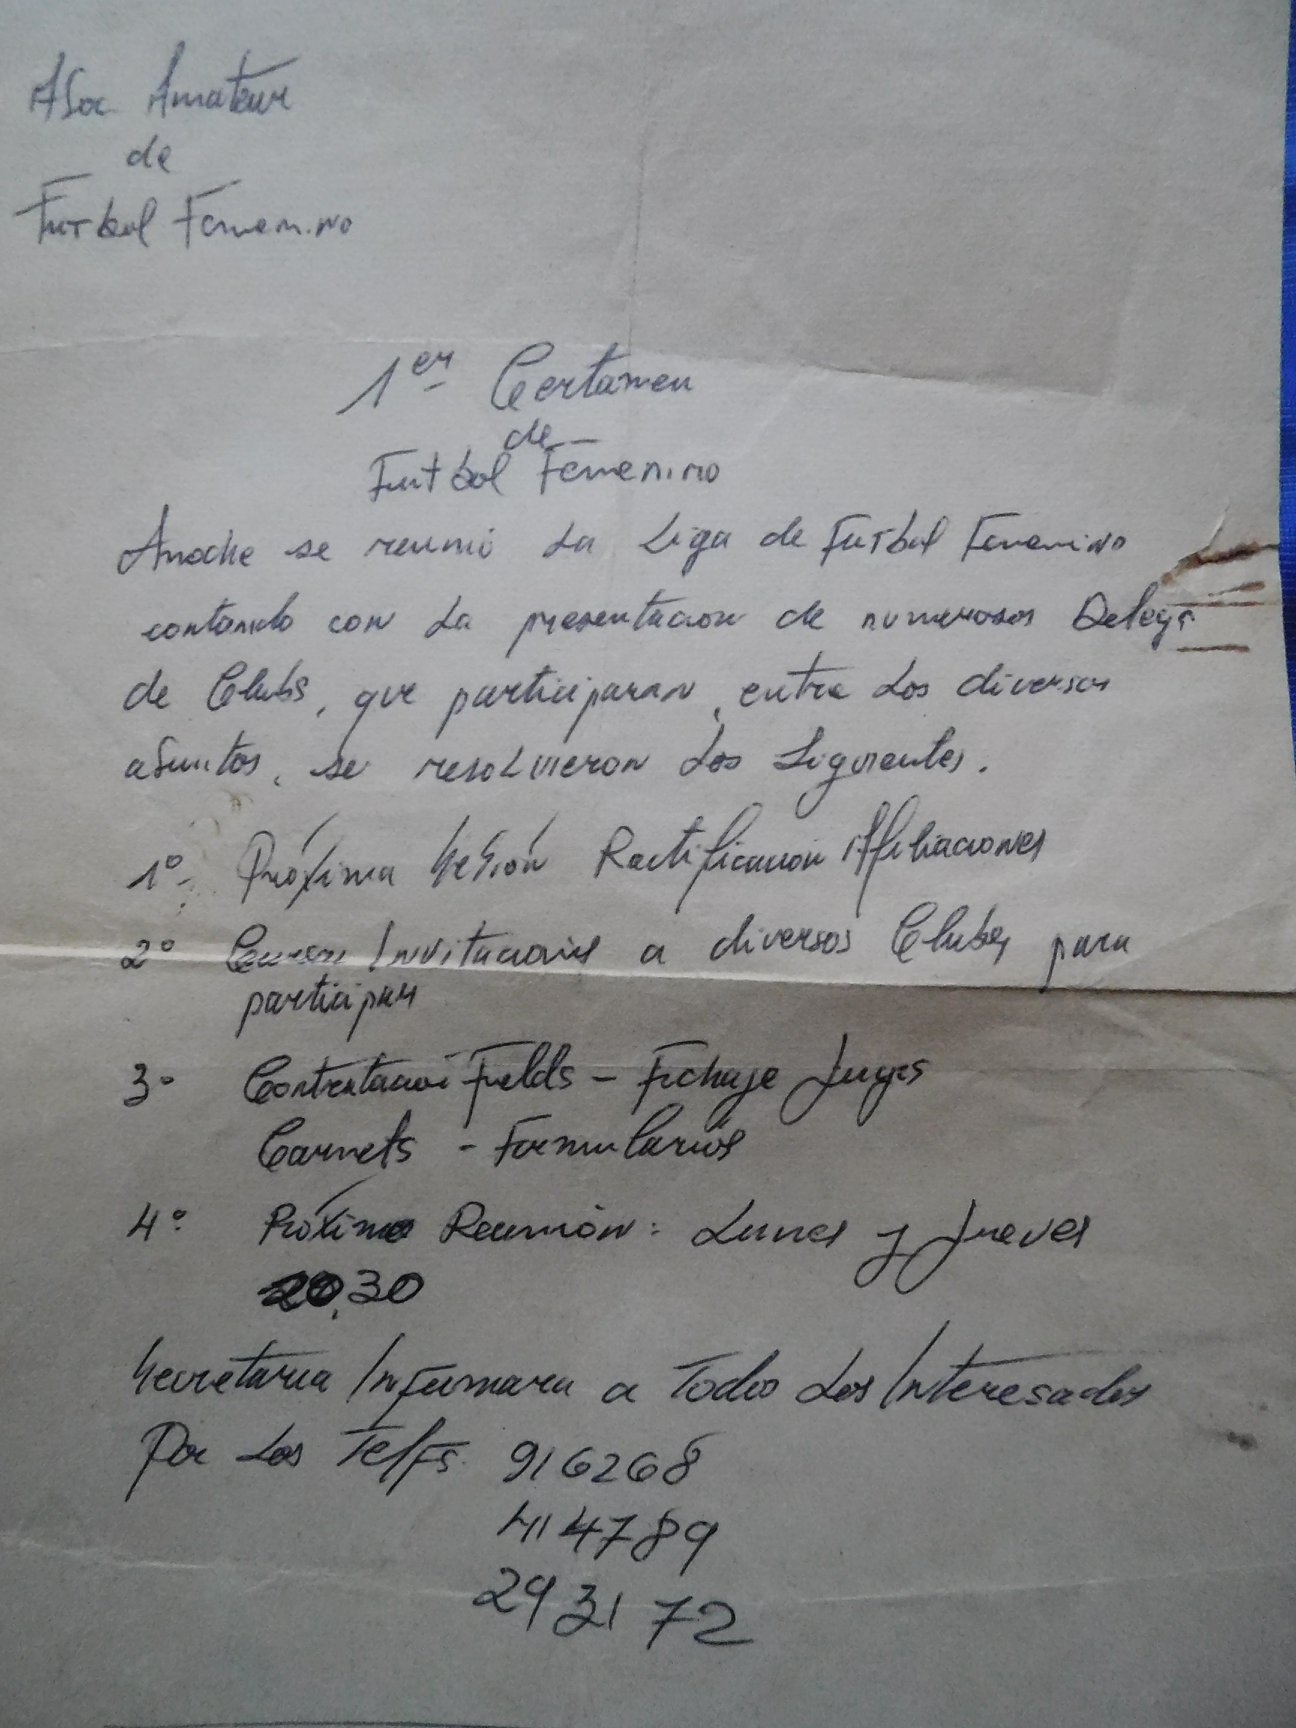 Asoc Amateur
de
Futbol Femenino
1er Certamen
de
Futbol Femenino
Anoche se reunió La Liga de Futbol Femenino
contando con La presentacion de numerosos Delegs
de Clubs, que participaran, entre Los diversos
asuntos, se resolvieron Los Siguientes.
1º- Próxima Sesión Ractificacion Affiliaciones
2º Cursar Invitaciones a diversos Clubes para
participar
3º Contratacion Fields - Fichaje Jueges
Carnets - Formularios
4º Próxima Reunión: Lunes y Jueves
20,30
Secretaria Informara a Todos Los Interesados
Por Los Telfs. 916268
414789
293172